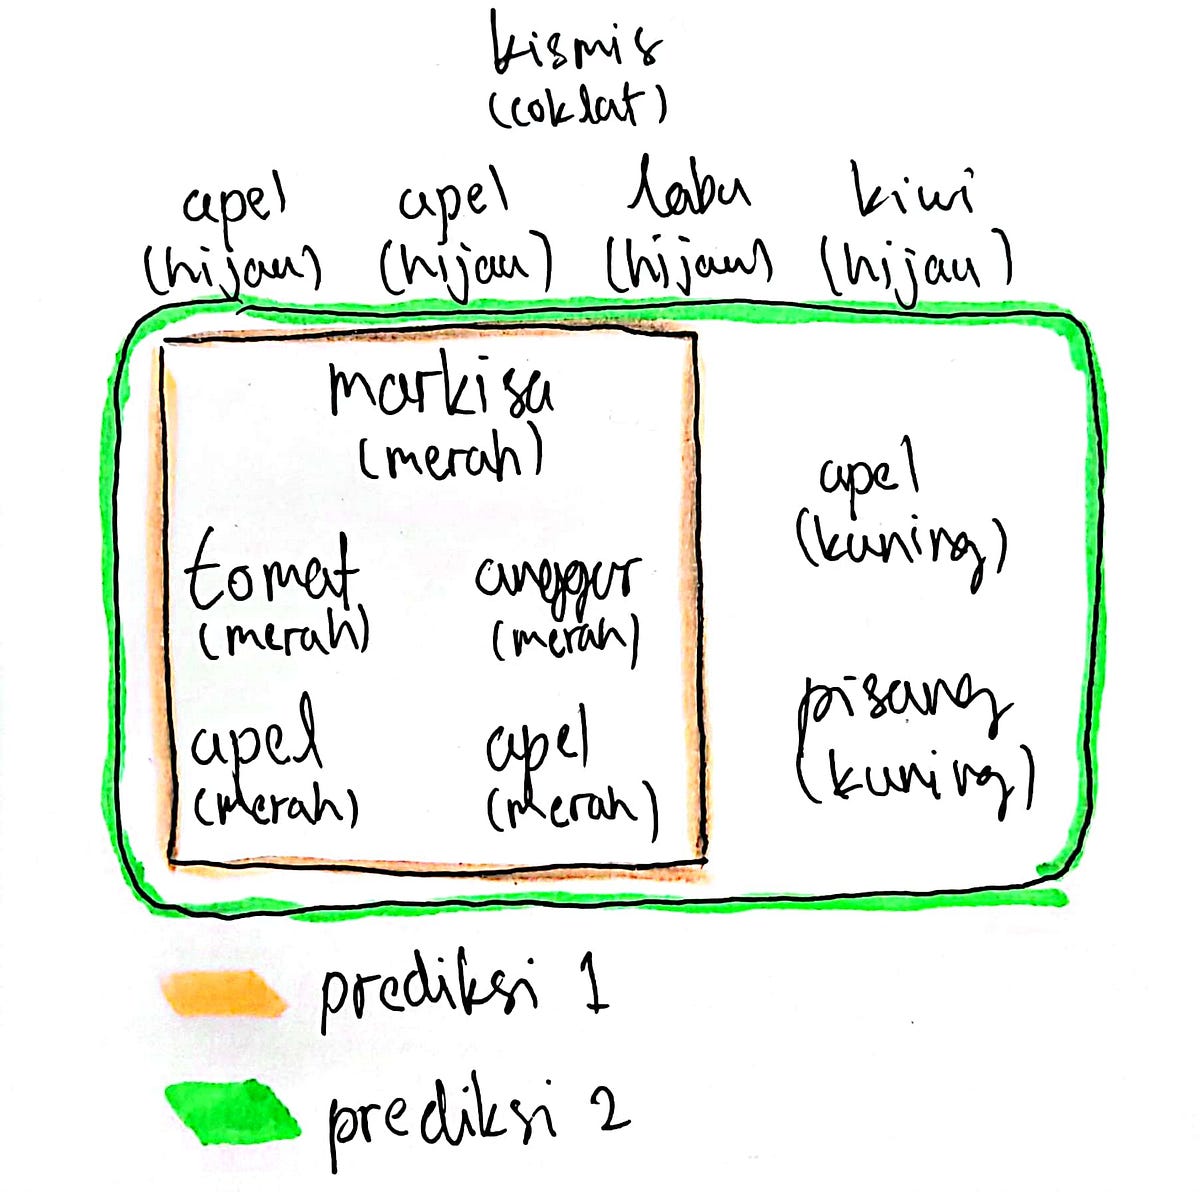 kismis
(coklat)
apel apel labu kiwi
(hijau) (hijau) (hijau) (hijau)
markisa
(merah)
apel
(kuning)
tomat anggur
(merah) (merah)
pisang
(kuning)
apel apel
(merah) (merah)
prediksi 1
prediksi 2